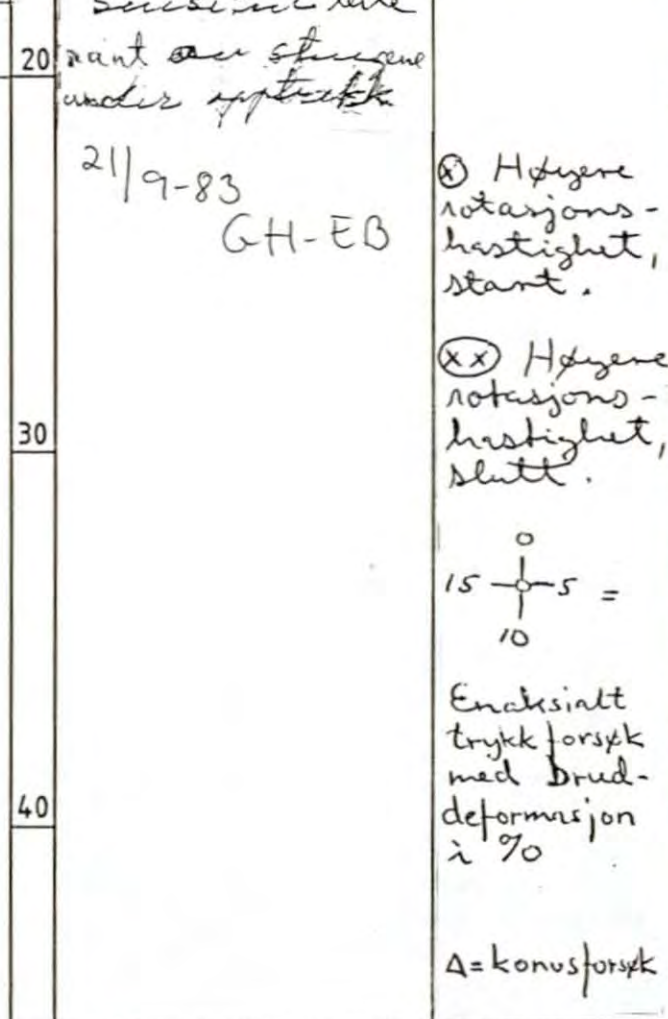 20
under opptrekk
21/9-83
GH-EB
30
40
(x) Høyere
rotasjons-
hastighet,
start.
(xx) Høyere
rotasjons-
hastighet,
slutt.
0
15 5 =
10
Enaksialt
trykkforsøk
med brud-
deformasjon
i %
Δ = konusforsøk